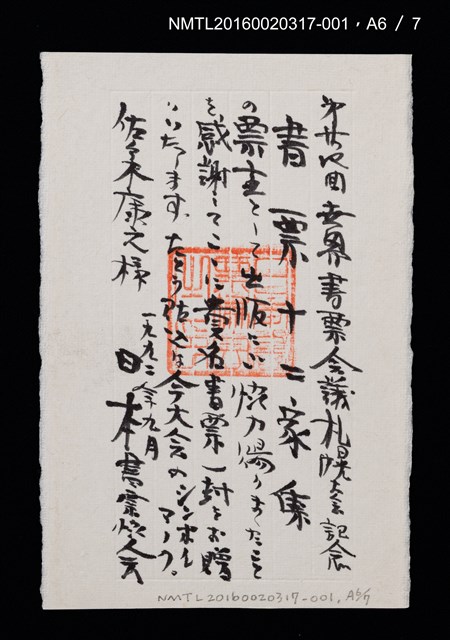 NMTL20160020317-001，A6 / 7
第廿四回世界書票会議札幌大会記念
書票十二家集
の票主として出版にご協力賜りましたこと
を感謝してここに貴名書票一封をお贈
りいたします。たとう貼込は今大会のシンボルマーク。
一九九二年九月
佐々木康之様
日本書票協会
NMTL20160020317-001, A6/7